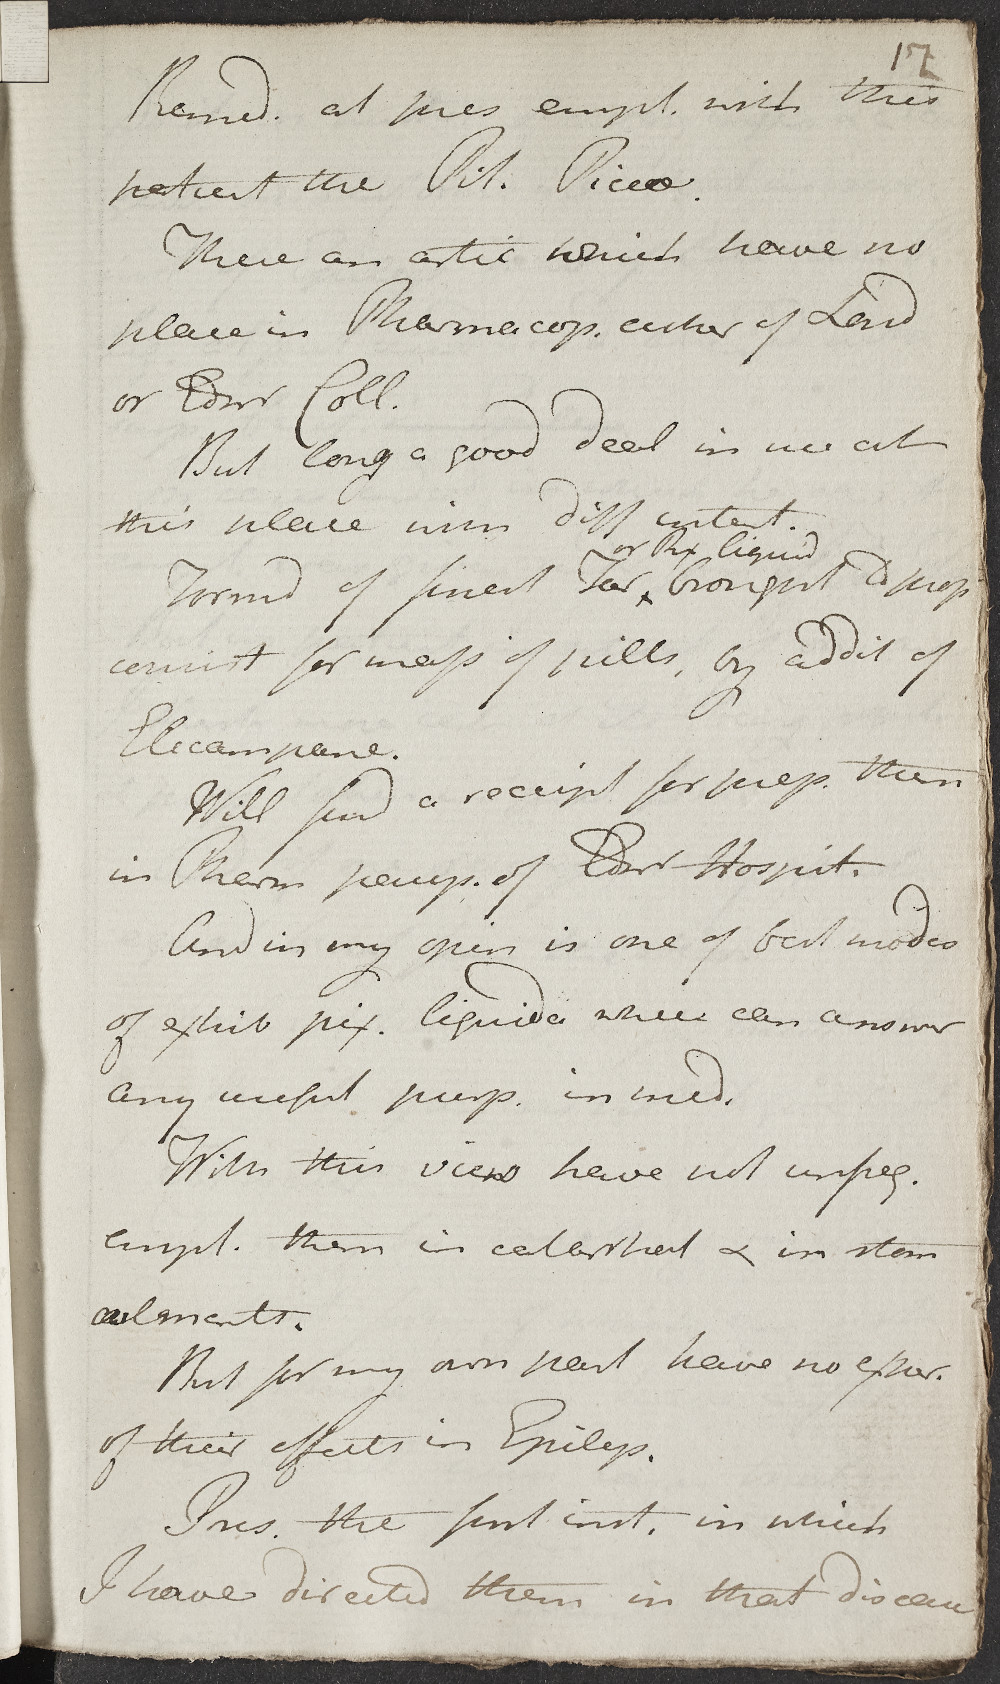 17
Remed. at pres empl. with this
patient the Pil. Piceæ.
These an artic which have no
place in Pharmacop. either of Lond
or Edinr Coll.
But long a good deal in use at
this place with diff intent.
or Pix liquid
Formd of finest Tar, brought to prop
consist for mass of pills, by addit of
Elecampane.
Will find a receipt for prep. them
in Pharm paup. of Edinr Hospit.
And in my opin is one of best modes
of exhib pix. liquida where can answer
any useful purp. in med.
With this view have not unfreq.
empl. them in catarrhal & in stom
ailments.
But for my own part have no exper.
of their effects in Epileps.
Pres. the first inst. in which
I have directed them in that disease